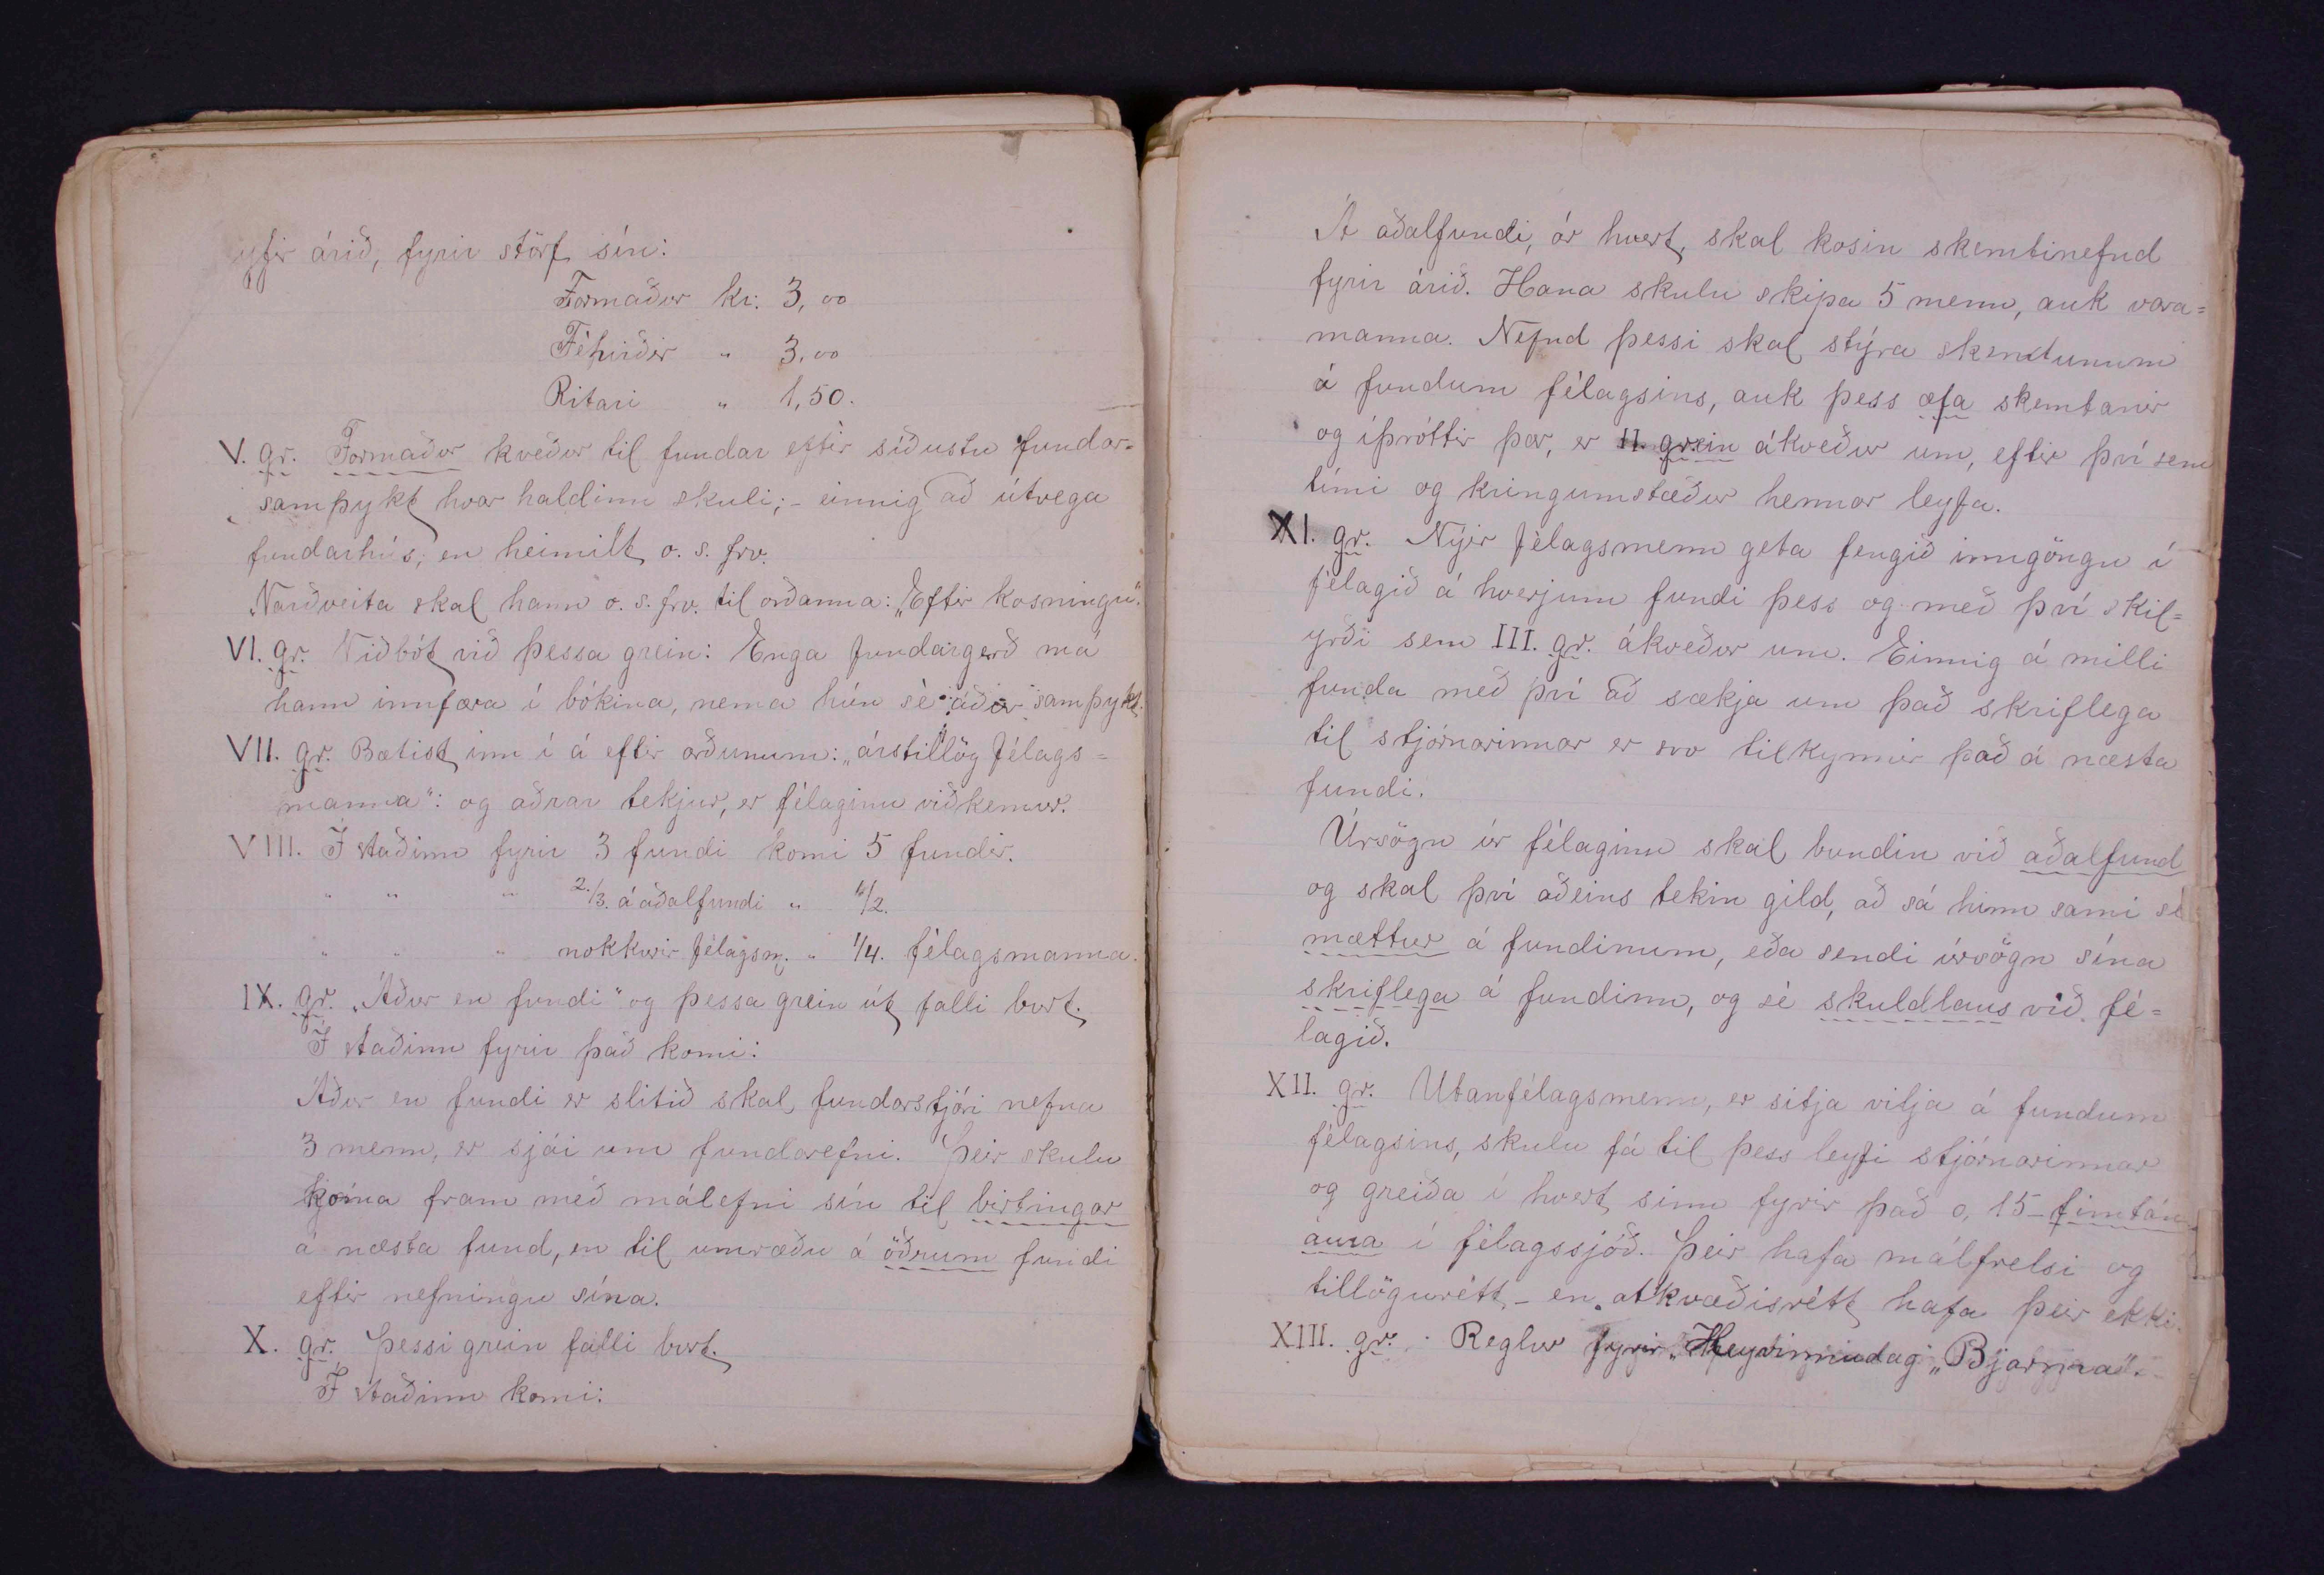 yfir árið, fyrir störf sín:
Formaður kr. 3,00
Féhirðir " 3,00
Ritari " 1,50.
V. gr. Formaður kveður til fundar eftir síðustu fundar=
samþykt hvar haldinn skuli; - einnig að útvega
fundarhús; en heimilt o. s. frv.
Varðveita skal hann o. s. frv. til orðanna: „Eftir kosningu".
VI. gr. Viðbót við þessa grein: Enga fundargerð má
hann innfæra í bókina, nema hún sé áður samþykt.
VII. gr. Bætist inn í á eftir orðunum: „árstillög félags=
manna": og aðrar tekjur, er félaginu viðkemur.
VIII. Í staðinn fyrir 3 fundi komi 5 fundir.
" " " 2/3. á aðalfundi " 1/2.
" " " nokkurir félagsm. " 1/4. félagsmanna.
IX. gr. „Áður en fundi" og þessa grein út falli burt.
Í staðinn fyrir það komi:
Áður en fundi er slitið skal fundarstjóri nefna
3 menn, er sjái um fundarefni. Þeir skulu
koma fram með málefni sín til birtingar
á næsta fund, en til umræðu á öðrum fundi
eftir nefningu sína.
X. gr. Þessi grein falli burt.
Í staðinn komi:
Á aðalfundi, ár hvert, skal kosin skemtinefnd
fyrir árið. Hana skulu skipa 5 menn, auk vara=
manna. Nefnd þessi skal stýra skemtunum
á fundum félagsins, auk þess æfa skemtanir
og íþróttir þær, er II. grein ákveður um, eftir því sem
tími og kringumstæður hennar leyfa.
XI. gr. Nýir félagsmenn geta fengið inngöngu í
félagið á hverjum fundi þess og með því skil=
yrði sem III. gr. ákveður um. Einnig á milli
funda með því að sækja um það skriflega
til stjórnarinnar er svo tilkynnir það á næsta
fundi.
Úrsögn úr félaginu skal bundin við aðalfund
og skal því aðeins tekin gild, að sá hinn sami sé
mættur á fundinum, eða sendi úrsögn sína
skriflega á fundinn, og sé skuldlaus við fé=
lagið.
XII. gr. Utanfélagsmenn, er sitja vilja á fundum
félagsins, skulu fá til þess leyfi stjórnarinnar
og greiða í hvert sinn fyrir það 0,15 - fimtán
aura í félagssjóð. Þeir hafa málfrelsi og
tillögurétt, - en atkvæðisrétt hafa þeir ekki.
XIII. gr. Reglur fyrir „Heyvinnudag „Bjarma".